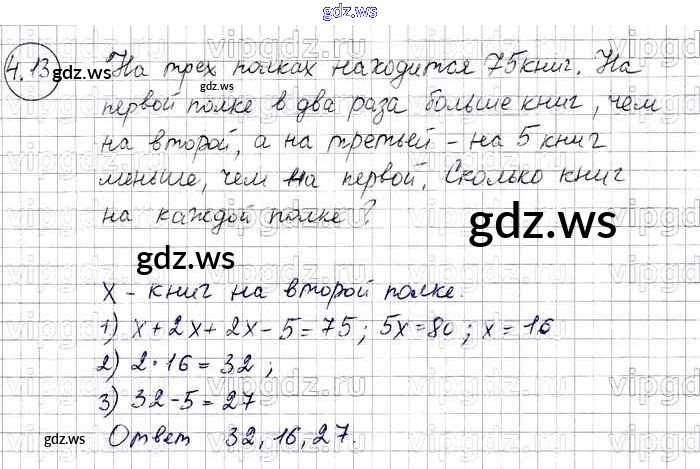 gdz.ws
4.13 На трех полках находится 75 книг. На
gdz.ws
gdz.ws
первой полке в два раза больше книг, чем
на второй, а на третьей - на 5 книг
меньше, чем на первой. Сколько книг
на каждой полке?
gdz.ws
gdz.ws
х - книг на второй полке.
1) х + 2х + 2х - 5 = 75; 5х = 80; х = 16
2) 2 · 16 = 32;
gdz.ws
3) 32 - 5 = 27
Ответ 32, 16, 27.
gdz.ws
gdz.ws